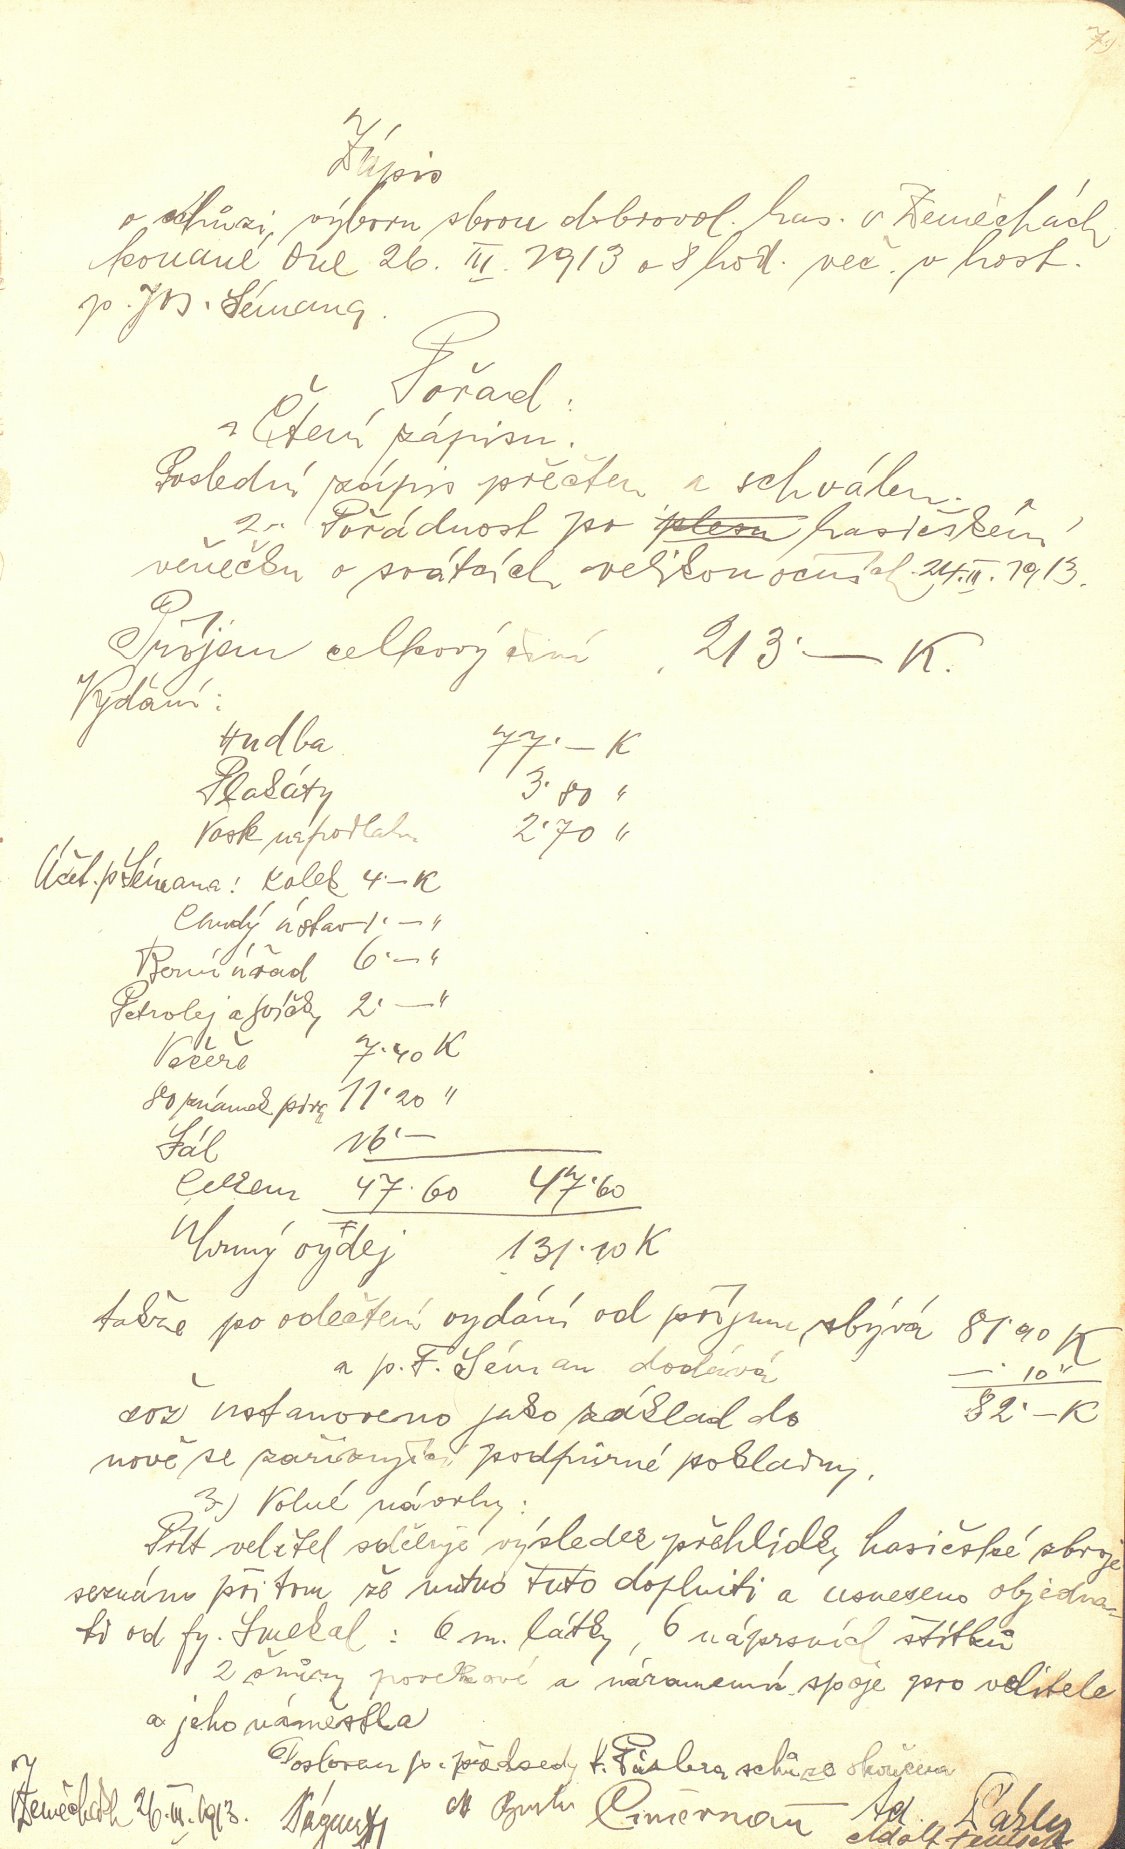 79
Zápis
o schůzi, výboru sboru dobrovol. has. v Zeměchách
konané dne 26. III. 1913 o 8 hod. več. v host.
p. Jos. Sémana.
Pořad:
Čtení zápisu.
Poslední zápis přečten a schválen.
2. Pořádnost po plesu hasičském
věnečku o svátcích velikonočních 24. II. 1913.
Příjem celkový činí 213·— K.
Vydání:
Hudba 77·— K
Plakáty 3·80 "
Vosk na podlahu 2·70 "
Účet. p. Sémana: Kolek 4·— K
Chudý ústav 1·— "
Berní úřad 6·— "
Petrolej a svíčky 2·— "
Večeře 7·40 K
80 známek piva 11·20 "
Sál 16·—
Celkem 47·60 47·60
Úhrnný výdej 131·10 K
takže po odečtení vydání od příjmu zbývá 81·90 K
a p. F. Séman dodává —·10 "
což ustanoveno jako základ do 82·— K
nově se zařizující podpůrné pokladny.
3.) Volné návrhy:
Pát velitel sděluje výsledek přehlídky hasičské zbroje
seznáno při tom že nutno tuto doplniti a usneseno objedna-
ti od fy. Smekal: 6 m. látky, 6 náprsních štítků
2 šňůry a náramenní spoje pro velitele
a jeho náměstka
p. předsedy schůze skončena
Zeměchách 26. III. 1913. Cimerman Ad.
Adolf